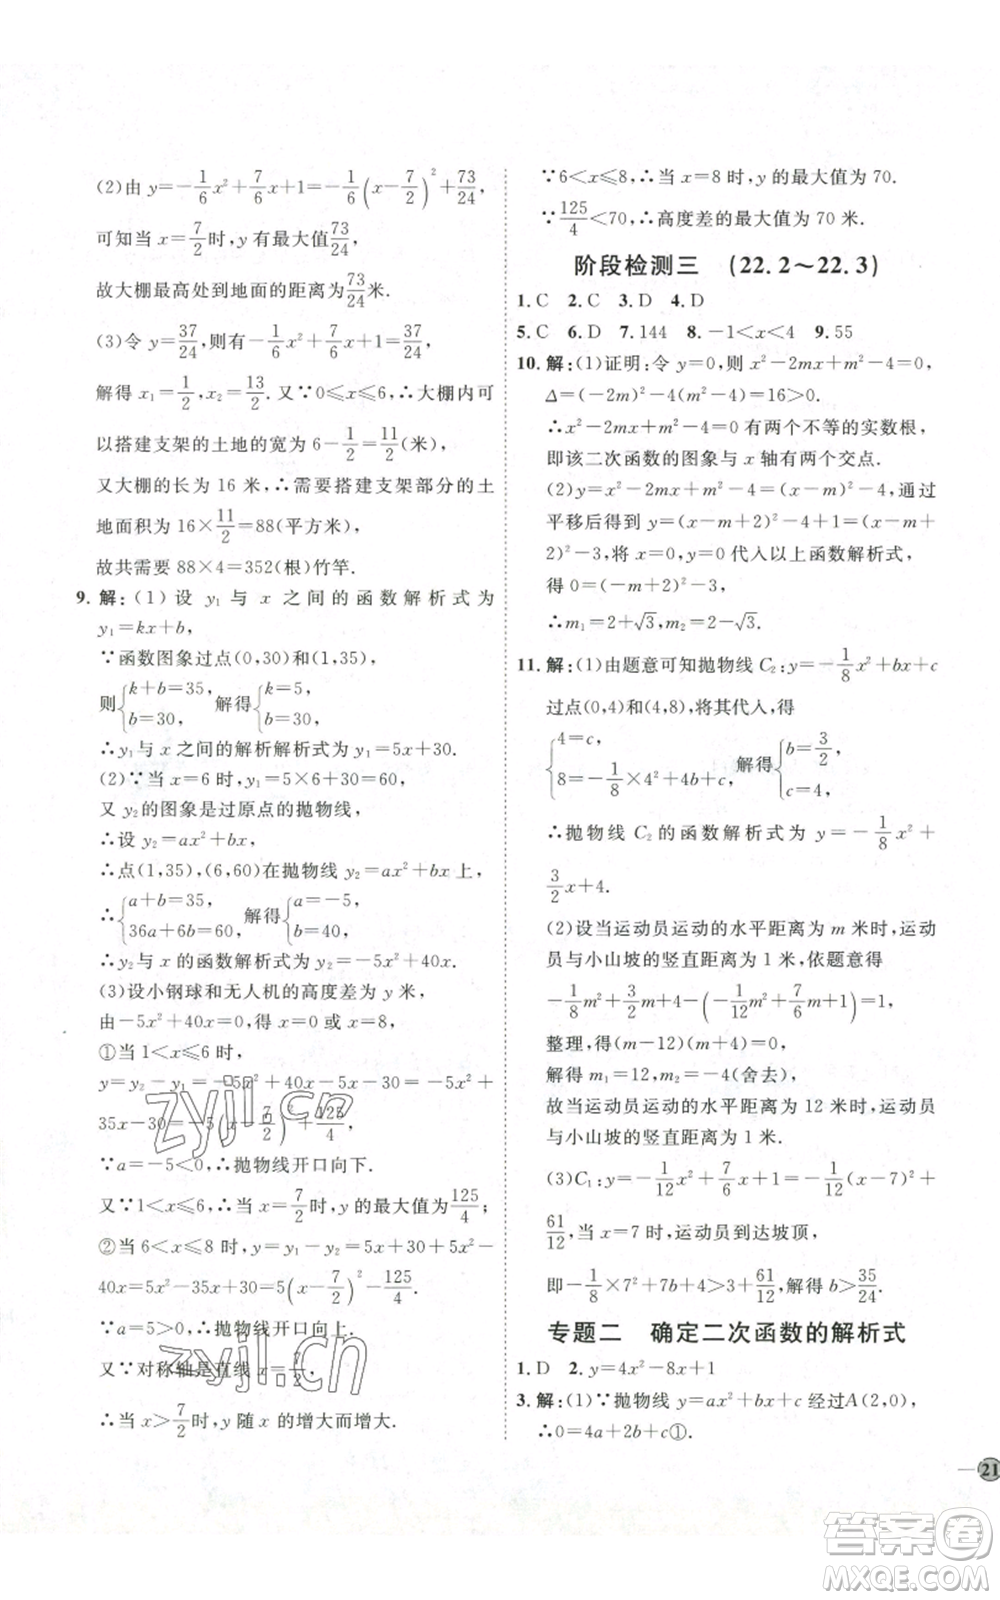 (2)由 y=-1/6x²+7/6x+1=-1/6(x-7/2)²+73/24,
可知当 x=7/2时,y 有最大值73/24,
故大棚最高处到地面的距离为73/24米.
(3)令 y=37/24,则有-1/6x²+7/6x+1=37/24,
解得 x₁=1/2,x₂=13/2. 又∵0≤x≤6,∴大棚可
以搭建支架的土地的宽为 6-1/2=11/2(米),
又大棚的长为 16 米,∴需要搭建支架部分的土
地面积为 16×11/2=88(平方米),
故共需要 88×4=352(根)竹竿.
9. 解:(1)设 y₁ 与 x 之间的函数解析式为
y₁=kx+b,
∵函数图象过点(0,30)和(1,35),
则{k+b=35, b=30, 解得{k=5, b=30,
∴y₁与 x 之间的解析解析式为 y₁=5x+30.
(2)∵当 x=6 时,y₁=5×6+30=60,
又 y₂的图象是过原点的抛物线,
∴设 y₂=ax²+bx,
∴点(1,35),(6,60)在抛物线 y₂=ax²+bx 上,
∴{a+b=35, 36a+6b=60, 解得{a=-5, b=40,
∴y₂与 x 的函数解析式为 y₂=-5x²+40x.
(3)设小钢球和无人机的高度差为 y 米,
由-5x²+40x=0,得 x=0或x=8.
①当 1<x≤6 时,
y=y₂-y₁=-5x²+40x-5x-30=-5x²+
35x-30=-5(x-7/2)²+125/4,
∵a=-5<0,∴抛物线开口向下.
又∵1<x≤6,∴当 x=7/2时,y 的最大值为125/4;
②当 6<x≤8 时,y=y₁-y₂=5x+30+5x²-
40x=5x²-35x+30=5(x-7/2)²-125/4.
∵a=5>0,∴抛物线开口向上.
又∵对称轴是直线 x=7/2.
∴当 x>7/2时,y 随 x 的增大而增大.
∵6<x≤8,∴当 x=8 时,y 的最大值为 70.
∵125/4<70,∴高度差的最大值为 70 米.
阶段检测三 (22.2~22.3)
1. C 2. C 3. D 4. D
5. C 6. D 7. 144 8. -1<x<4 9. 55
10. 解:(1)证明:令 y=0,则 x²-2mx+m²-4=0,
Δ=(-2m)²-4(m²-4)=16>0.
∴x²-2mx+m²-4=0 有两个不等的实数根,
即该二次函数的图象与 x 轴有两个交点.
(2)y=x²-2mx+m²-4=(x-m)²-4,通过
平移后得到 y=(x-m+2)²-4+1=(x-m+
2)²-3,将 x=0,y=0 代入以上函数解析式,
得 0=(-m+2)²-3,
∴m₁=2+√3,m₂=2-√3.
11. 解:(1)由题意可知抛物线 C₂:y=-1/8x²+bx+c
过点(0,4)和(4,8),将其代人,得
{4=c, 8=-1/8×4²+4b+c, 解得{b=3/2, c=4,
∴抛物线 C₂的函数解析式为 y=-1/8x²+
3/2x+4.
(2)设当运动员运动的水平距离为 m 米时,运
动员与小山坡的竖直距离为 1 米,依题意得
-1/8m²+3/2m+4-(-1/12m²+7/6m+1)=1,
整理,得(m-12)(m+4)=0,
解得 m₁=12,m₂=-4(舍去),
故当运动员运动的水平距离为 12 米时,运动员
与小山坡的竖直距离为 1 米.
(3)C₁:y=-1/12x²+7/6x+1=-1/12(x-7)²+
61/12,当 x=7 时,运动员到达坡顶,
即-1/8×7²+7b+4>3+61/12,解得 b>35/24.
专题二 确定二次函数的解析式
1. D 2. y=4x²-8x+1
3. 解:(1)∵抛物线 y=ax²+bx+c 经过A(2,0),
∴0=4a+2b+c①.
21
zyjl.cn
zyjl.cn
答案卷